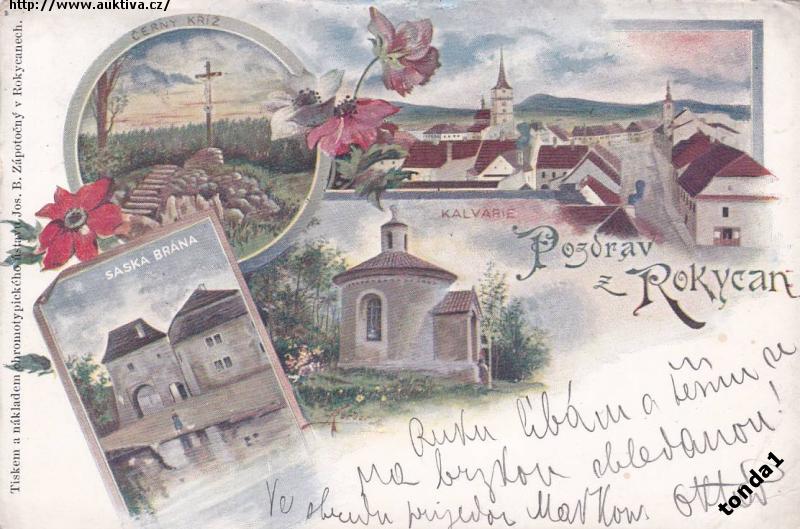 http://www.auktiva.cz/
ČERNÝ KŘÍŽ
KALVARIE
SASKA BRÁNA
Pozdrav
z Rokycan
Tiskem a nákladem chromotypického ústavu Jos. B. Zápotočný v Rokycanech.
Ruku líbám a těším se
na brzkou shledanou!
Ve středu přijedou Otta
tonda1